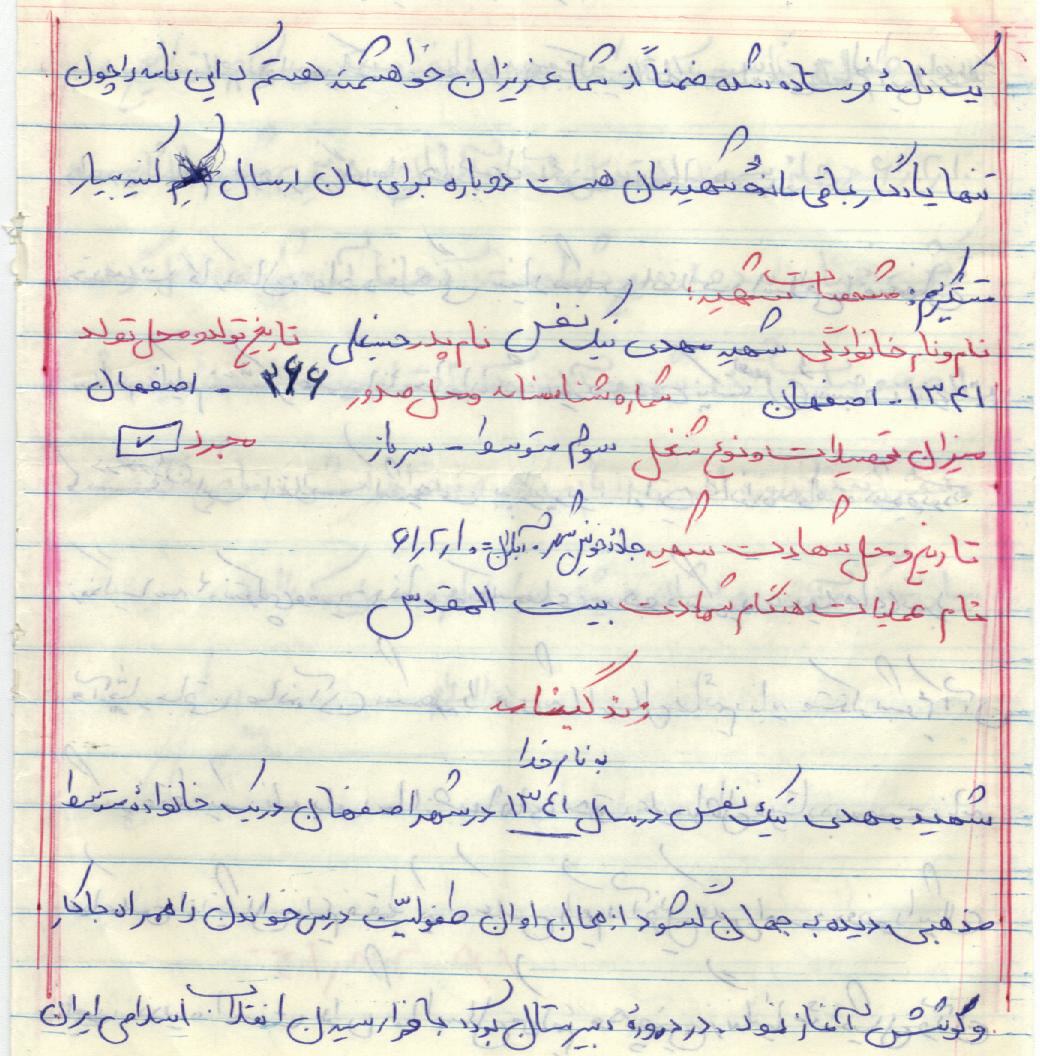 یک نامهٔ فرستاده شده ضمناً از شما عزیزان خواهشمند هستم که این نامه را چون
تنها یادگار باقی ماندهٔ شهیدمان هست دوباره برای مان ارسال کنید بسیار
متشکریم: مشخصات شهید:
نام و نام خانوادگی شهید مهدی نیک نفس نام پدر حسینعلی تاریخ تولد و محل تولد
۱۳۴۱ - اصفهان شماره شناسنامه و محل صدور ۲۶۶ - اصفهان
میزان تحصیلات و نوع شغل سوم متوسط - سرباز مجرد ✓
تاریخ و محل شهادت شهید جادهٔ خونین شهر ۶۱/۲/۱۰
نام عملیات هنگام شهادت بیت المقدس
زندگینامه
به نام خدا
شهید مهدی نیک نفس در سال ۱۳۴۱ در شهر اصفهان در یک خانوادهٔ متوسط
مذهبی دیده به جهان گشود از همان اوان طفولیّت درس خواندن را همراه با کار
و کوشش آغاز نمود. در دورهٔ دبیرستان بود که با فرا رسیدن انقلاب اسلامی ایران